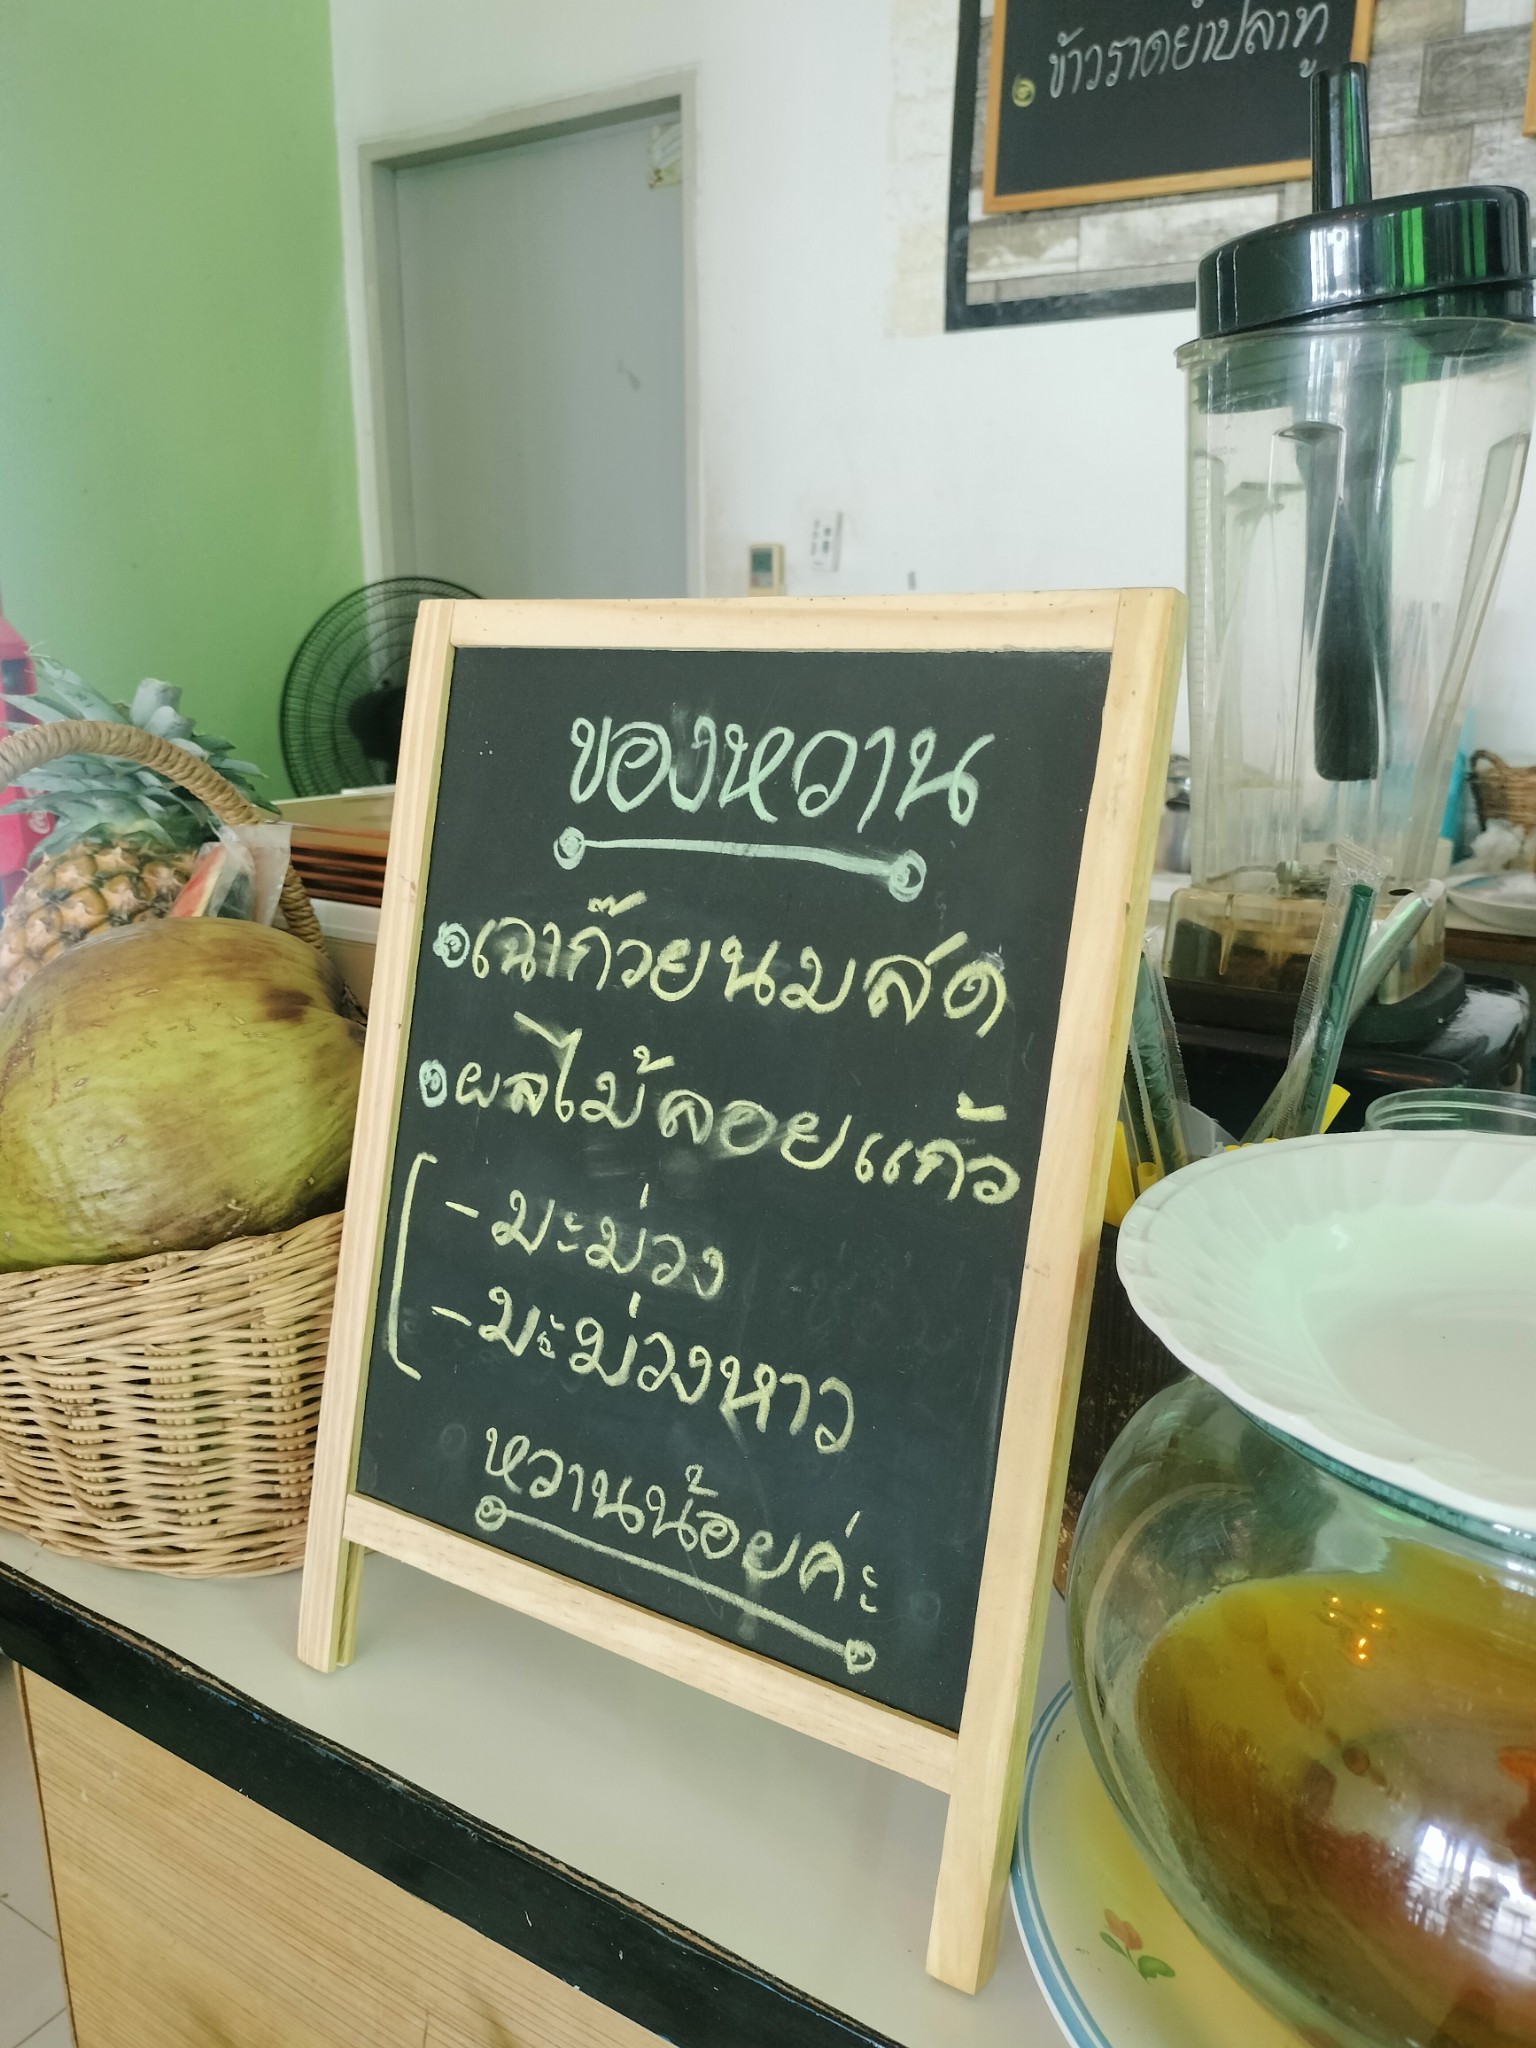 ข้าวราดยำปลาทู
ของหวาน
เฉาก๊วยนมสด
ผลไม้ลอยแก้ว
- มะม่วง
- มะม่วงหาว
หวานน้อยค่ะ